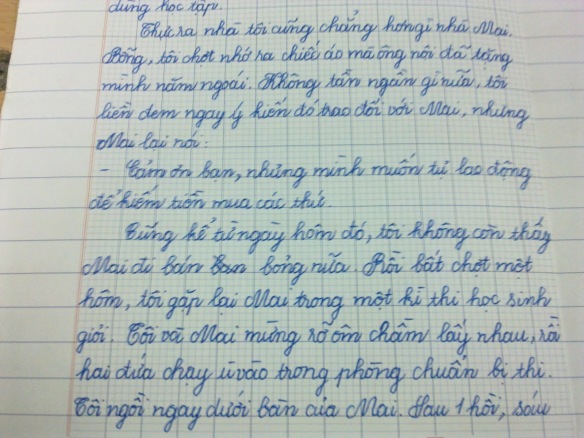 dùng học tập.
Thực ra nhà tôi cũng chẳng hơn gì nhà Mai.
Bỗng, tôi chợt nhớ ra chiếc áo mà ông nội đã tặng
mình năm ngoái. Không tần ngần gì nữa, tôi
liền đem ngay ý kiến đó trao đổi với Mai, nhưng
Mai lại nói:
- Cảm ơn bạn, nhưng mình muốn tự lao động
để kiếm tiền mua các thứ.
Cũng kể từ ngày hôm đó, tôi không còn thấy
Mai đi bán bỏng nữa. Rồi bất chợt một
hôm, tôi gặp lại Mai trong một kì thi học sinh
giỏi. Tôi và Mai mừng rỡ ôm chầm lấy nhau, rồi
hai đứa chạy ù vào trong phòng chuẩn bị thi.
Tôi ngồi ngay dưới bàn của Mai. Sau 1 hồi,